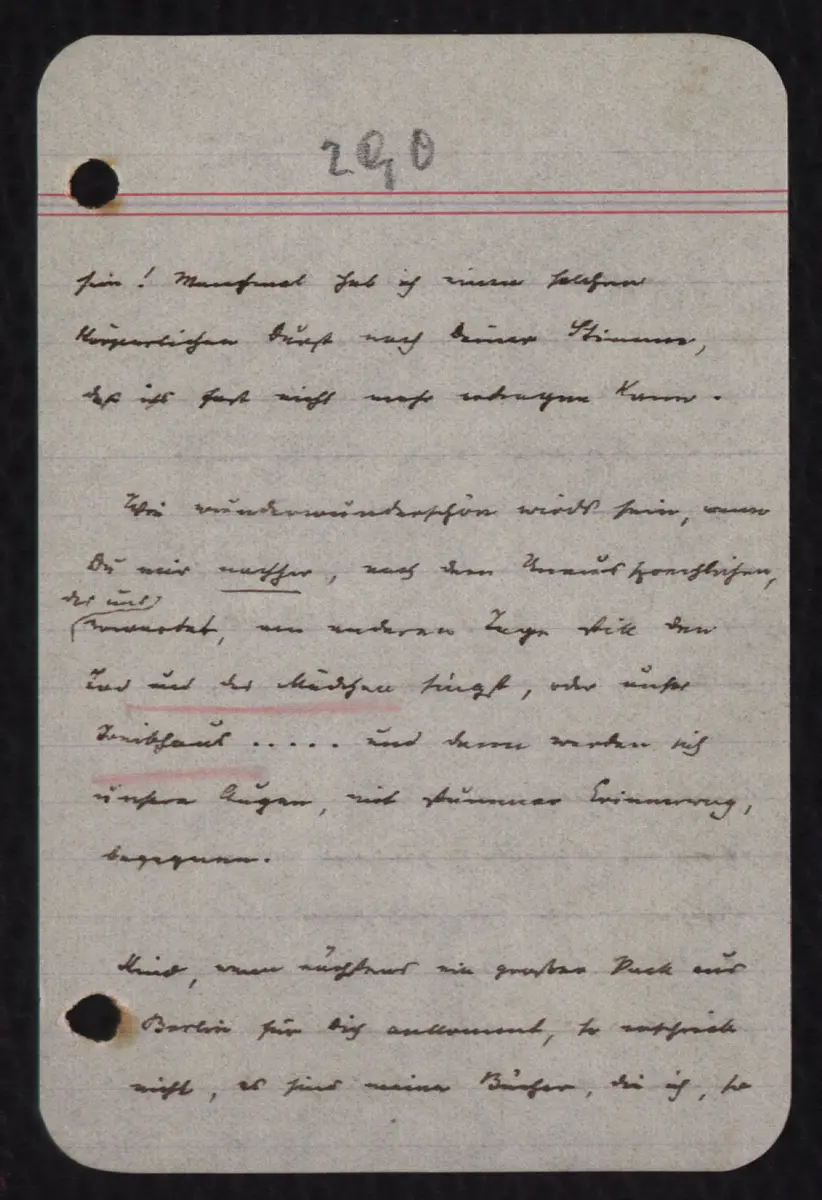 290
sein! Manchmal hab ich einen solchen
körperlichen Durst nach Deiner Stimme,
daß ichs fast nicht mehr ertragen kann.
Wie wunderwunderschön wirds sein, wenn
Du mir nachher, nach dem Unaussprechlichen,
das uns
erwartet, am anderen Tage still den
Tod und das Mädchen singst, oder unser
Treibhaus ..... und dann werden sich
unsere Augen, mit stummer Erinnerung,
begegnen.
Kind, wenn nächstens ein großer Pack aus
Berlin für Dich ankommt, so erschrick
nicht, es sind meine Bücher, die ich, so